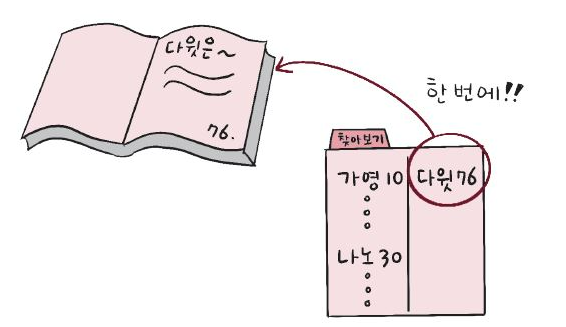 다윗은~
76.
한 번에!!
찾아보기
가영 10
나노 30
다윗 76